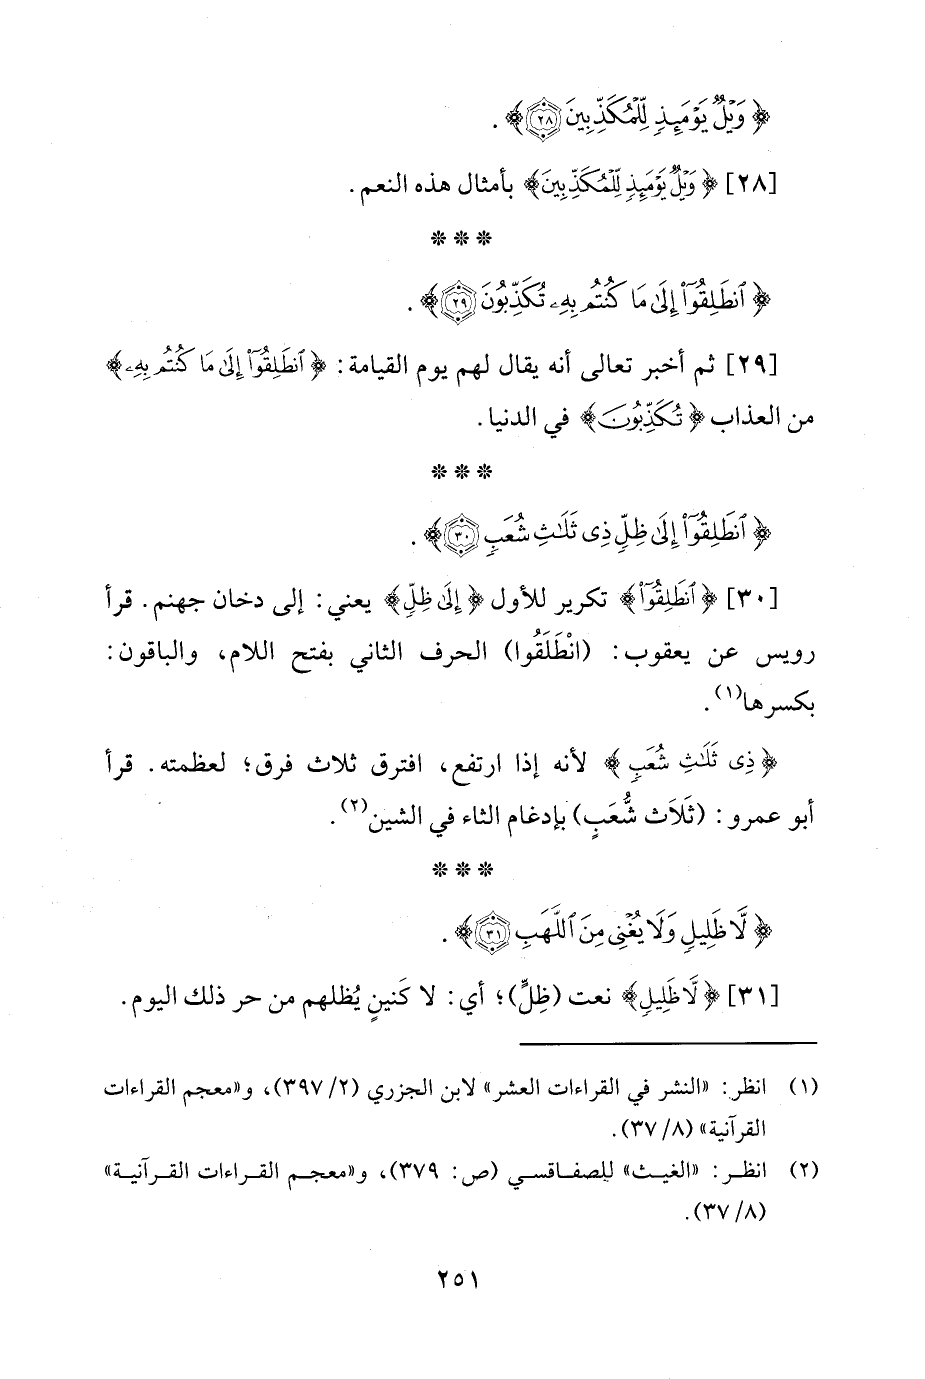 ﴿ وَيْلٌ يَوْمَئِذٍ لِّلْمُكَذِّبِينَ ٢٨ ﴾ .
[٢٨] ﴿ وَيْلٌ يَوْمَئِذٍ لِّلْمُكَذِّبِينَ ﴾ بأمثال هذه النعم .
* * *
﴿ ٱنطَلِقُوٓا۟ إِلَىٰ مَا كُنتُم بِهِۦ تُكَذِّبُونَ ٢٩ ﴾ .
[٢٩] ثم أخبر تعالى أنه يقال لهم يوم القيامة : ﴿ ٱنطَلِقُوٓا۟ إِلَىٰ مَا كُنتُم بِهِۦ ﴾
من العذاب ﴿ تُكَذِّبُونَ ﴾ في الدنيا .
* * *
﴿ ٱنطَلِقُوٓا۟ إِلَىٰ ظِلٍّ ذِى ثَلَٰثِ شُعَبٍ ٣٠ ﴾ .
[٣٠] ﴿ ٱنطَلِقُوٓا۟ ﴾ تكرير للأول ﴿ إِلَىٰ ظِلٍّ ﴾ يعني : إلى دخان جهنم . قرأ
رويس عن يعقوب : (انْطَلَقُوا) الحرف الثاني بفتح اللام، والباقون :
بكسرها(١) .
﴿ ذِى ثَلَٰثِ شُعَبٍ ﴾ لأنه إذا ارتفع، افترق ثلاث فرق؛ لعظمته . قرأ
أبو عمرو : (ثَلَاث شُّعَبٍ) بإدغام الثاء في الشين(٢) .
* * *
﴿ لَّا ظَلِيلٍ وَلَا يُغْنِى مِنَ ٱللَّهَبِ ٣١ ﴾ .
[٣١] ﴿ لَّا ظَلِيلٍ ﴾ نعت (ظِلٍّ)؛ أي : لا كَنينٍ يُظلهم من حر ذلك اليوم .
(١) انظر : «النشر في القراءات العشر» لابن الجزري (٢/ ٣٩٧)، و«معجم القراءات
القرآنية» (٨/ ٣٧).
(٢) انظر : «الغيث» للصفاقسي (ص: ٣٧٩)، و«معجم القراءات القرآنية»
(٨/ ٣٧).
٢٥١